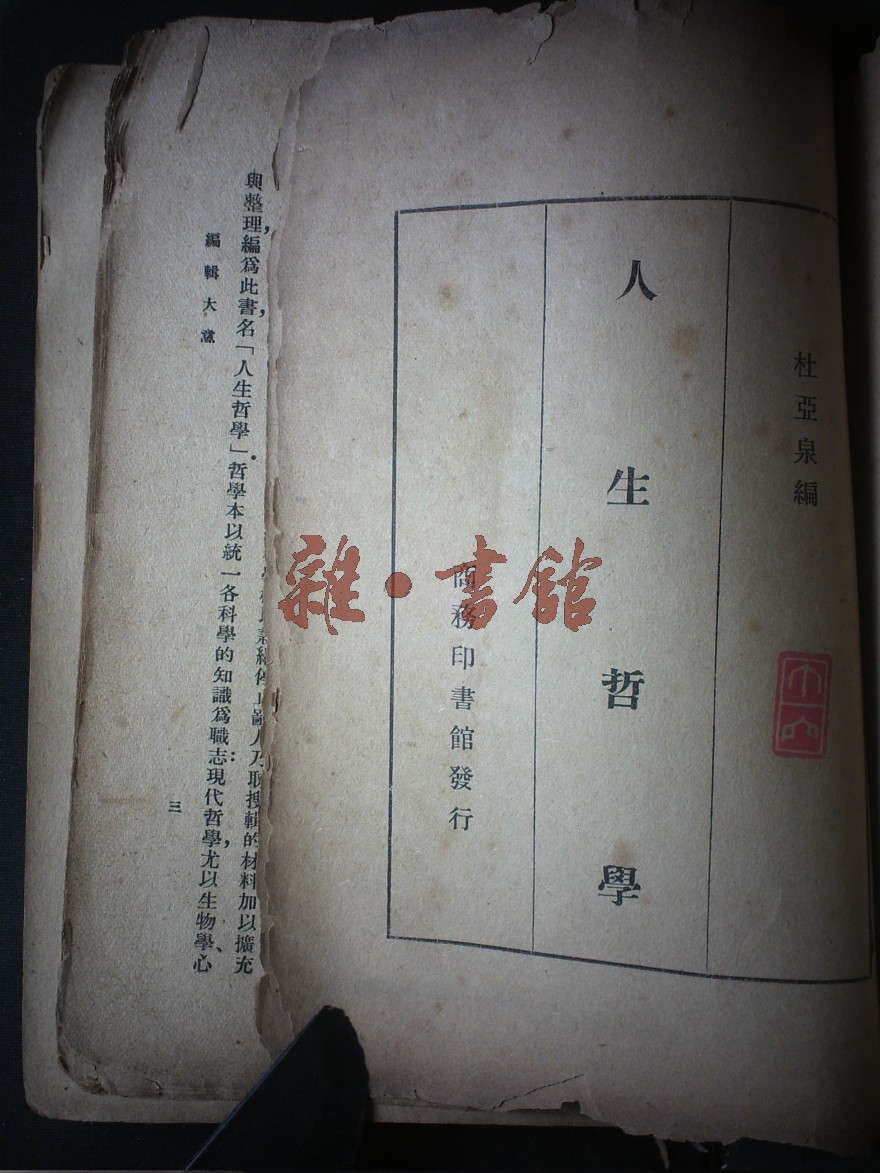 杜亞泉編
人生哲學
商務印書館發行
雜·書館
停止鄙人乃取搜輯的材料加以擴充
與整理,編爲此書,名「人生哲學」.哲學本以統一各科學的知識爲職志:現代哲學,尤以生物學、心
編輯大意
三